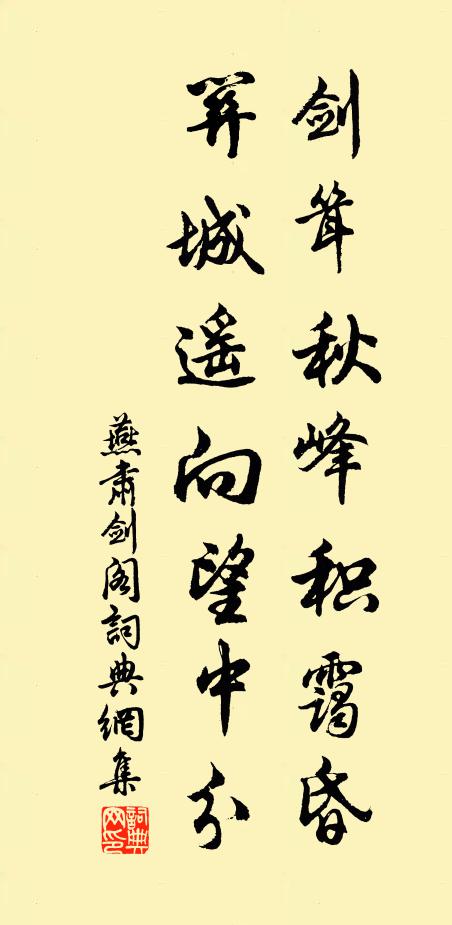 剑耸秋峰积霭昏
笄城遥向望中分
燕肃剑阁詞典網集
詞典网印